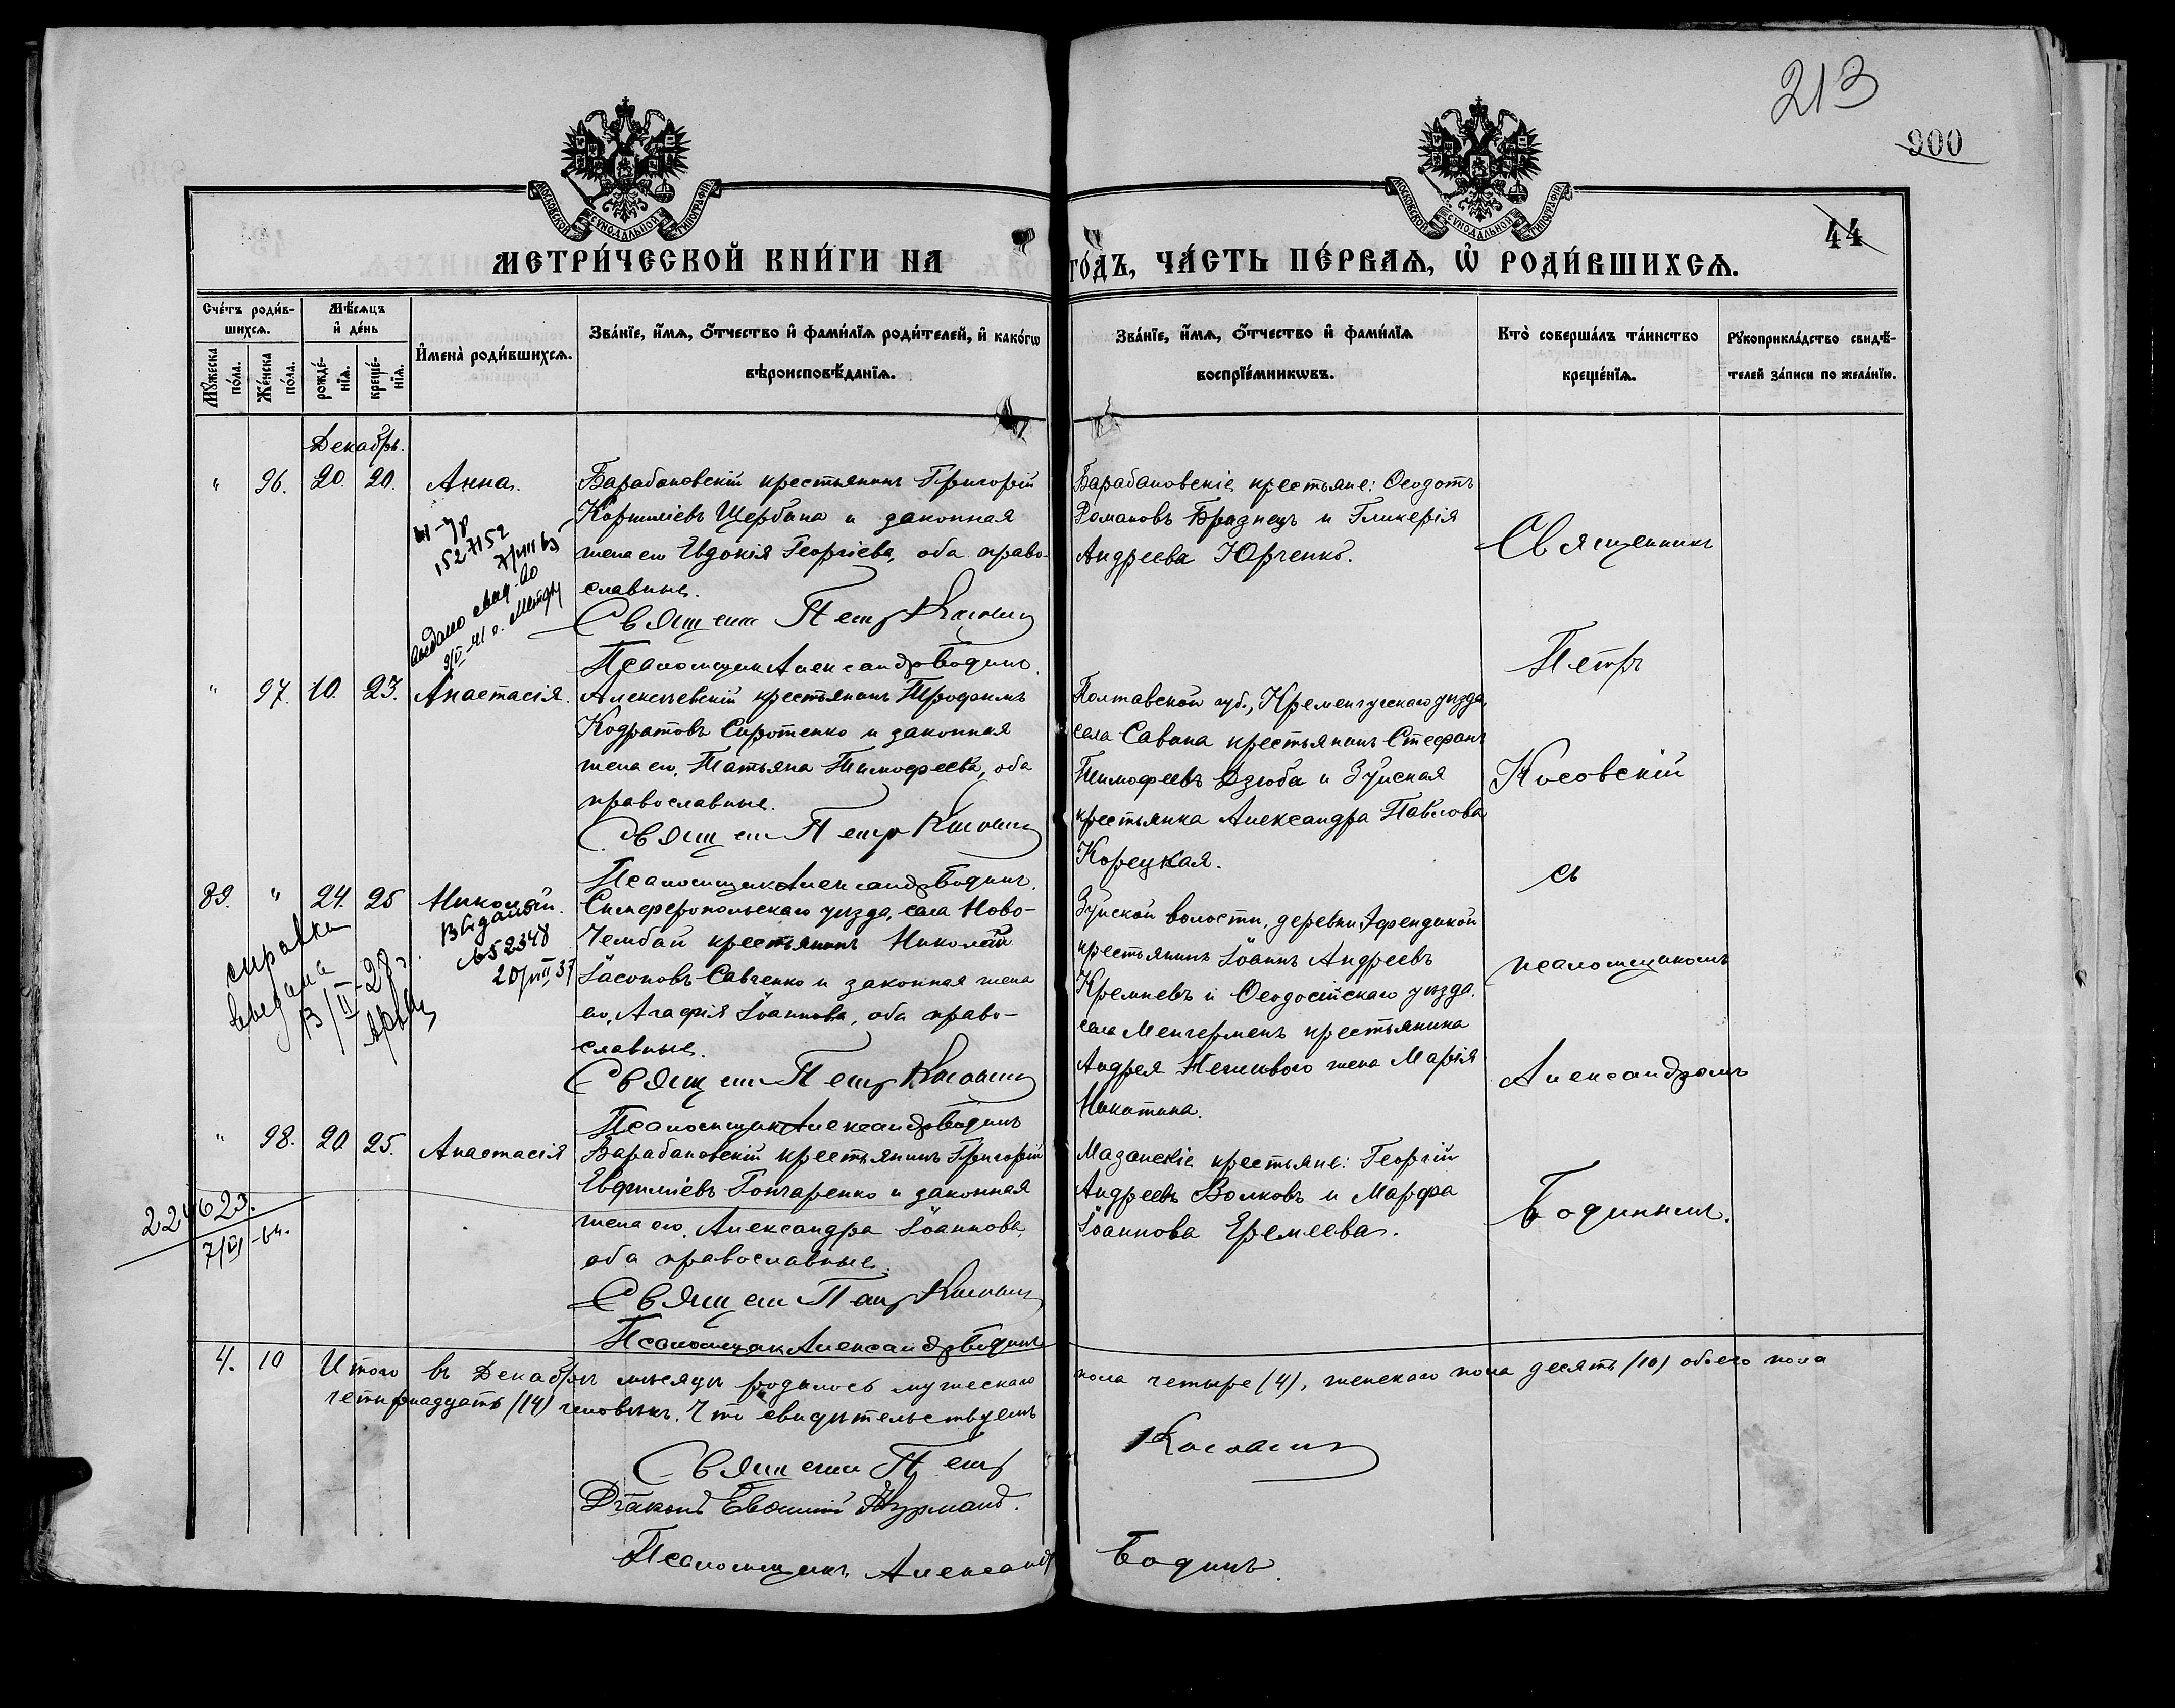 213
900
44
МОСКОВСКОЙ СѴНОДАЛЬНОЙ ТИПОГРАФІИ
МОСКОВСКОЙ СѴНОДАЛЬНОЙ ТИПОГРАФІИ
МЕТРИ́ЧЕСКОЙ КНИ́ГИ НА ГО́ДЪ, ЧА́СТЬ ПЕ́РВАѦ, Ѡ҆ РОДИ́ВШИХСѦ.
Сче́тъ роди́в-
шихсѧ.
Мꙋ́жеска по́ла.
Же́нска по́ла.
Мѣ́сѧцъ и҆ де́нь
рожде́-нїѧ.
креще́-нїѧ.
И҆мена̀ роди́вшихсѧ.
Зва́нїе, и҆́мѧ, ѻ҆́тчество и҆ фами́лїѧ роди́телей, и҆ како́гѡ
вѣроисповѣ́данїѧ.
Зва́нїе, и҆́мѧ, ѻ҆́тчество и҆ фами́лїѧ
воспрїе́мникѡвъ.
Кто̀ соверша́лъ та́инство
креще́нїѧ.
Рꙋкоприкла́дство свидѣ́-
телей за́писи по жела́нїю.
Декабрь.
" 96. 20. 20. Анна.
Барабановскій крестьянинъ Григорій
Корниліевъ Щербина и законная
жена его Евдокія Георгіева, оба право-
славные.
Священ Петр Косовскій
Псаломщик Александр Бодинъ.
Барабановскіе крестьяне: Ѳеодотъ
Романовъ Бразнецъ и Гликерія
Андреева Юрченко.
1527152
выдано свид-во
" 97. 10. 23. Анастасія.
Алексѣевскій крестьянинъ Трофимъ
Кодратовъ Сиротенко и законная
жена его, Татьяна Тимофеева, оба
православные.
Священ Петр Косовскій
Псаломщик Александр Бодинъ.
Полтавской губ., Кременчугскаго уѣзда,
села Савина крестьянинъ Стефанъ
Тимофеевъ Дзюба и Зуйская
крестьянка Александра Павлова
Корецкая.
89. " 24. 25 Николай.
Выдано
№ 52348
20/VIII 37
справка
выдана
13/II-28 г.
Симферопольскаго уѣзда, села Ново-
Чембай крестьянинъ Николай
Іасоновъ Савченко и законная жена
его, Агафія Іоаннова, оба право-
славные.
Священ Петр Косовскій
Псаломщик Александр Бодинъ
Зуйской волости, деревни Эфендикой
крестьянинъ Іоаннъ Андреевъ
Кремневъ и Ѳеодосійскаго уѣзда,
села Менгерменъ крестьянина
Андрея жена Марія
Никитина.
" 98. 20 25. Анастасія
224623.
7/VI-64.
Барабановскій крестьянинъ Григорій
Евфиміевъ Гончаренко и законная
жена его, Александра Іоаннова,
оба православные.
Священ Петр Косовскій
Псаломщик Александр Бодинъ
Мазанскіе крестьяне: Георгій
Андреевъ Волковъ и Марфа
Іоаннова Еремеева.
Священникъ
Петръ
Косовскій
съ
псаломщикомъ
Александромъ
Бодинымъ.
4. 10 Итого въ Декабрѣ мѣсяцѣ родилось мужескаго пола четыре (4), женскаго пола десять (10) обоего пола
четырнадцать (14) человѣкъ. Что свидѣтельствуемъ
Священ Петр Косовскій
Діаконъ Евѳимій
Псаломщикъ Александр Бодинъ.